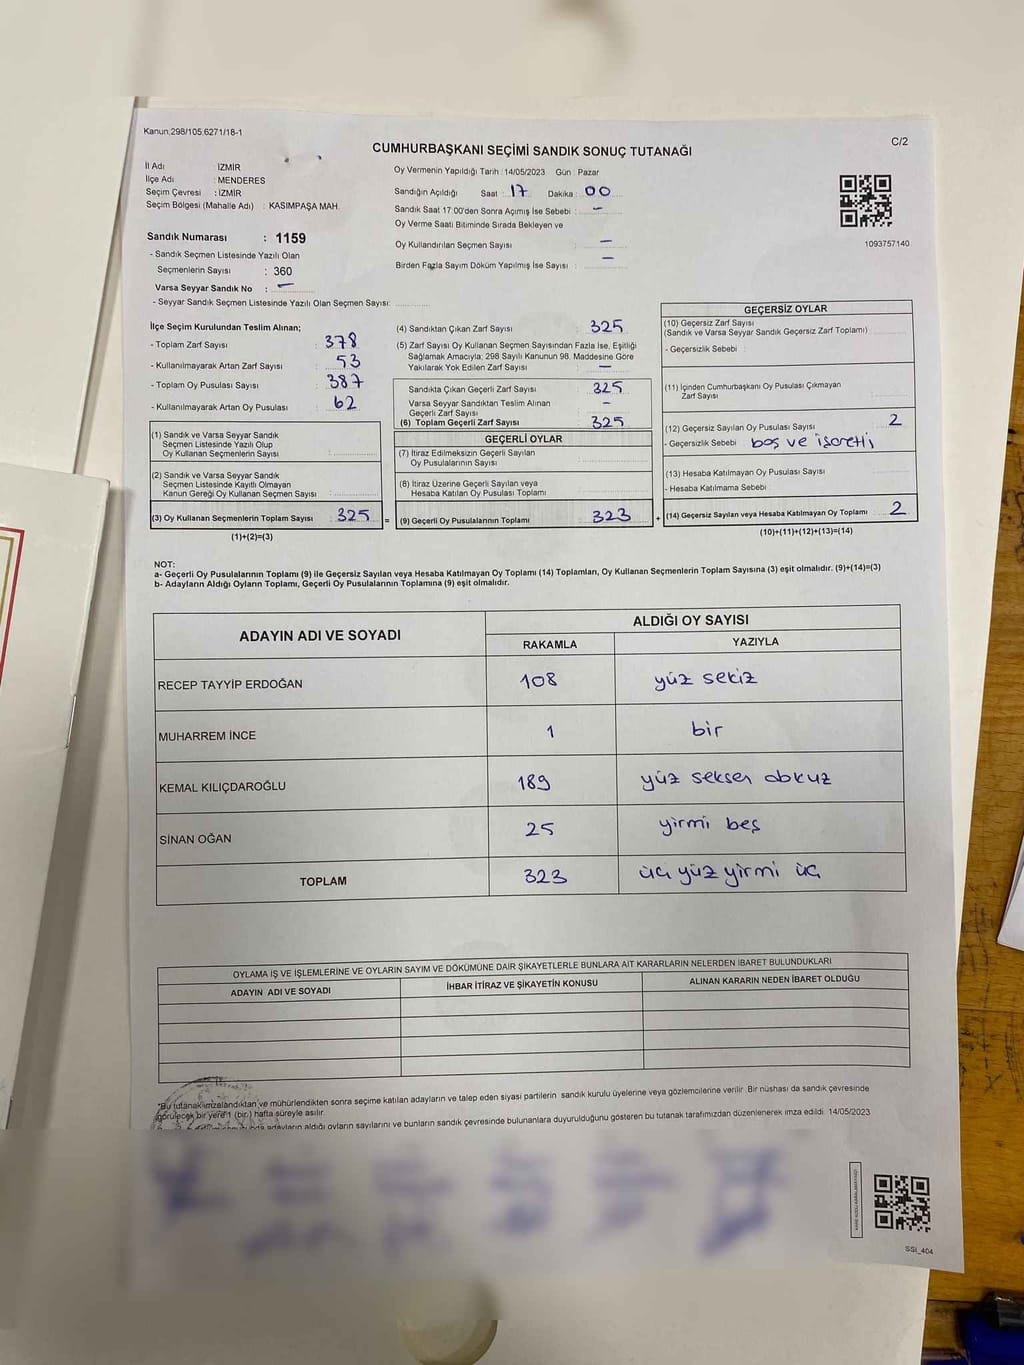 Kanun.298/105.6271/18-1
C/2
CUMHURBAŞKANI SEÇİMİ SANDIK SONUÇ TUTANAĞI
İl Adı : İZMİR
İlçe Adı : MENDERES
Seçim Çevresi : İZMİR
Seçim Bölgesi (Mahalle Adı) : KASIMPAŞA MAH.
Sandık Numarası : 1159
- Sandık Seçmen Listesinde Yazılı Olan
Seçmenlerin Sayısı : 360
Varsa Seyyar Sandık No : –
- Seyyar Sandık Seçmen Listesinde Yazılı Olan Seçmen Sayısı:
Oy Vermenin Yapıldığı Tarih : 14/05/2023 Gün : Pazar
Sandığın Açıldığı Saat : 17 Dakika : 00
Sandık Saat 17:00'den Sonra Açımış İse Sebebi : –
Oy Verme Saati Bitiminde Sırada Bekleyen ve
Oy Kullandırılan Seçmen Sayısı : –
Birden Fazla Sayım Döküm Yapılmış İse Sayısı : –
1093757140
İlçe Seçim Kurulundan Teslim Alınan;
- Toplam Zarf Sayısı : 378
- Kullanılmayarak Artan Zarf Sayısı : 53
- Toplam Oy Pusulası Sayısı : 387
- Kullanılmayarak Artan Oy Pusulası : 62
(1) Sandık ve Varsa Seyyar Sandık
Seçmen Listesinde Yazılı Olup
Oy Kullanan Seçmenlerin Sayısı :
(2) Sandık ve Varsa Seyyar Sandık
Seçmen Listesinde Kayıtlı Olmayan
Kanun Gereği Oy Kullanan Seçmen Sayısı :
(3) Oy Kullanan Seçmenlerin Toplam Sayısı : 325 =
(1)+(2)=(3)
(4) Sandıktan Çıkan Zarf Sayısı : 325
(5) Zarf Sayısı Oy Kullanan Seçmen Sayısından Fazla İse, Eşitliği
Sağlamak Amacıyla; 298 Sayılı Kanunun 98. Maddesine Göre
Yakılarak Yok Edilen Zarf Sayısı : –
Sandıkta Çıkan Geçerli Zarf Sayısı : 325
Varsa Seyyar Sandıktan Teslim Alınan
Geçerli Zarf Sayısı : –
(6) Toplam Geçerli Zarf Sayısı : 325
GEÇERLİ OYLAR
(7) İtiraz Edilmeksizin Geçerli Sayılan
Oy Pusulalarının Sayısı :
(8) İtiraz Üzerine Geçerli Sayılan veya
Hesaba Katılan Oy Pusulası Toplamı :
(9) Geçerli Oy Pusulalarının Toplamı : 323 +
GEÇERSİZ OYLAR
(10) Geçersiz Zarf Sayısı
(Sandık ve Varsa Seyyar Sandık Geçersiz Zarf Toplamı) :
- Geçersizlik Sebebi :
(11) İçinden Cumhurbaşkanı Oy Pusulası Çıkmayan
Zarf Sayısı :
(12) Geçersiz Sayılan Oy Pusulası Sayısı : 2
- Geçersizlik Sebebi : boş ve işaretli
(13) Hesaba Katılmayan Oy Pusulası Sayısı :
- Hesaba Katılmama Sebebi :
(14) Geçersiz Sayılan veya Hesaba Katılmayan Oy Toplamı : 2
(10)+(11)+(12)+(13)=(14)
NOT:
a- Geçerli Oy Pusulalarının Toplamı (9) ile Geçersiz Sayılan veya Hesaba Katılmayan Oy Toplamı (14) Toplamları, Oy Kullanan Seçmenlerin Toplam Sayısına (3) eşit olmalıdır. (9)+(14)=(3)
b- Adayların Aldığı Oyların Toplamı, Geçerli Oy Pusulalarının Toplamına (9) eşit olmalıdır.
ADAYIN ADI VE SOYADI ALDIĞI OY SAYISI
RAKAMLA YAZIYLA
RECEP TAYYİP ERDOĞAN 108 yüz sekiz
MUHARREM İNCE 1 bir
KEMAL KILIÇDAROĞLU 189 yüz seksen dokuz
SİNAN OĞAN 25 yirmi beş
TOPLAM 323 üç yüz yirmi üç
OYLAMA İŞ VE İŞLEMLERİNE VE OYLARIN SAYIM VE DÖKÜMÜNE DAİR ŞİKAYETLERLE BUNLARA AİT KARARLARIN NELERDEN İBARET BULUNDUKLARI
ADAYIN ADI VE SOYADI İHBAR İTİRAZ VE ŞİKAYETİN KONUSU ALINAN KARARIN NEDEN İBARET OLDUĞU
"Bu tutanak imzalandıktan ve mühürlendikten sonra seçime katılan adayların ve talep eden siyasi partilerin sandık kurulu üyelerine veya gözlemcilerine verilir. Bir nüshası da sandık çevresinde
görülecek bir yere 1 (bir) hafta süreyle asılır.
adayların aldığı oyların sayılarını ve bunların sandık çevresinde bulunanlara duyurulduğunu gösteren bu tutanak tarafımızdan düzenlenerek imza edildi. 14/05/2023
SSI_404